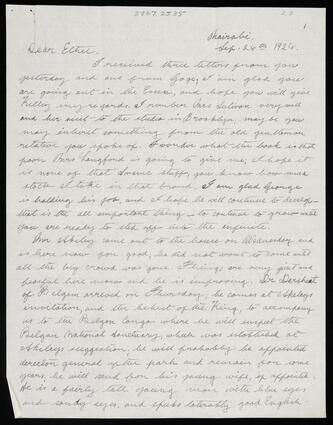 3407.2535
Nairobi.
Sep. 26th 1926.
Dear Ethel:
I received three letters from you
yesterday and one from Gogo; I am glad you
are going out in the Essex, and hope you will give
Kelley my regards. I remember Mrs Sulivan very well
and her visit to the studio in Brooklyn, may be you
may inherit something from the old gentleman
relative you spoke of. I wonder what the book is that
poor Mrs Langford is going to give me; I hope it
is none of that stuff, you know how much
stock I take in that brand. I am glad George
is holding his job, and I hope he will continue to develop
that is the all important thing - to continue to grow until
you are ready to step off into the infinite.
Mr Akeley came out to the house on Wednesday and
is here now for good; he did not want to come until
all the big crowd was gone. Things are very quiet and
peaceful here now and he is improving. Dr Derscheid
of Belgium arrived on Thursday; he comes at Akeleys
invitation, and the behest of the King, to accompany
us to the Belgian Congo where he will inspect the
Belgian National Sanctuary, which was established at
Akeleys suggestion; he will probably be appointed
director general of the park and remain for some
years, he will send for his young wife, if appointed.
He is a fairly tall young man with blue eyes
and sandy eyes, and speaks tolerably good English